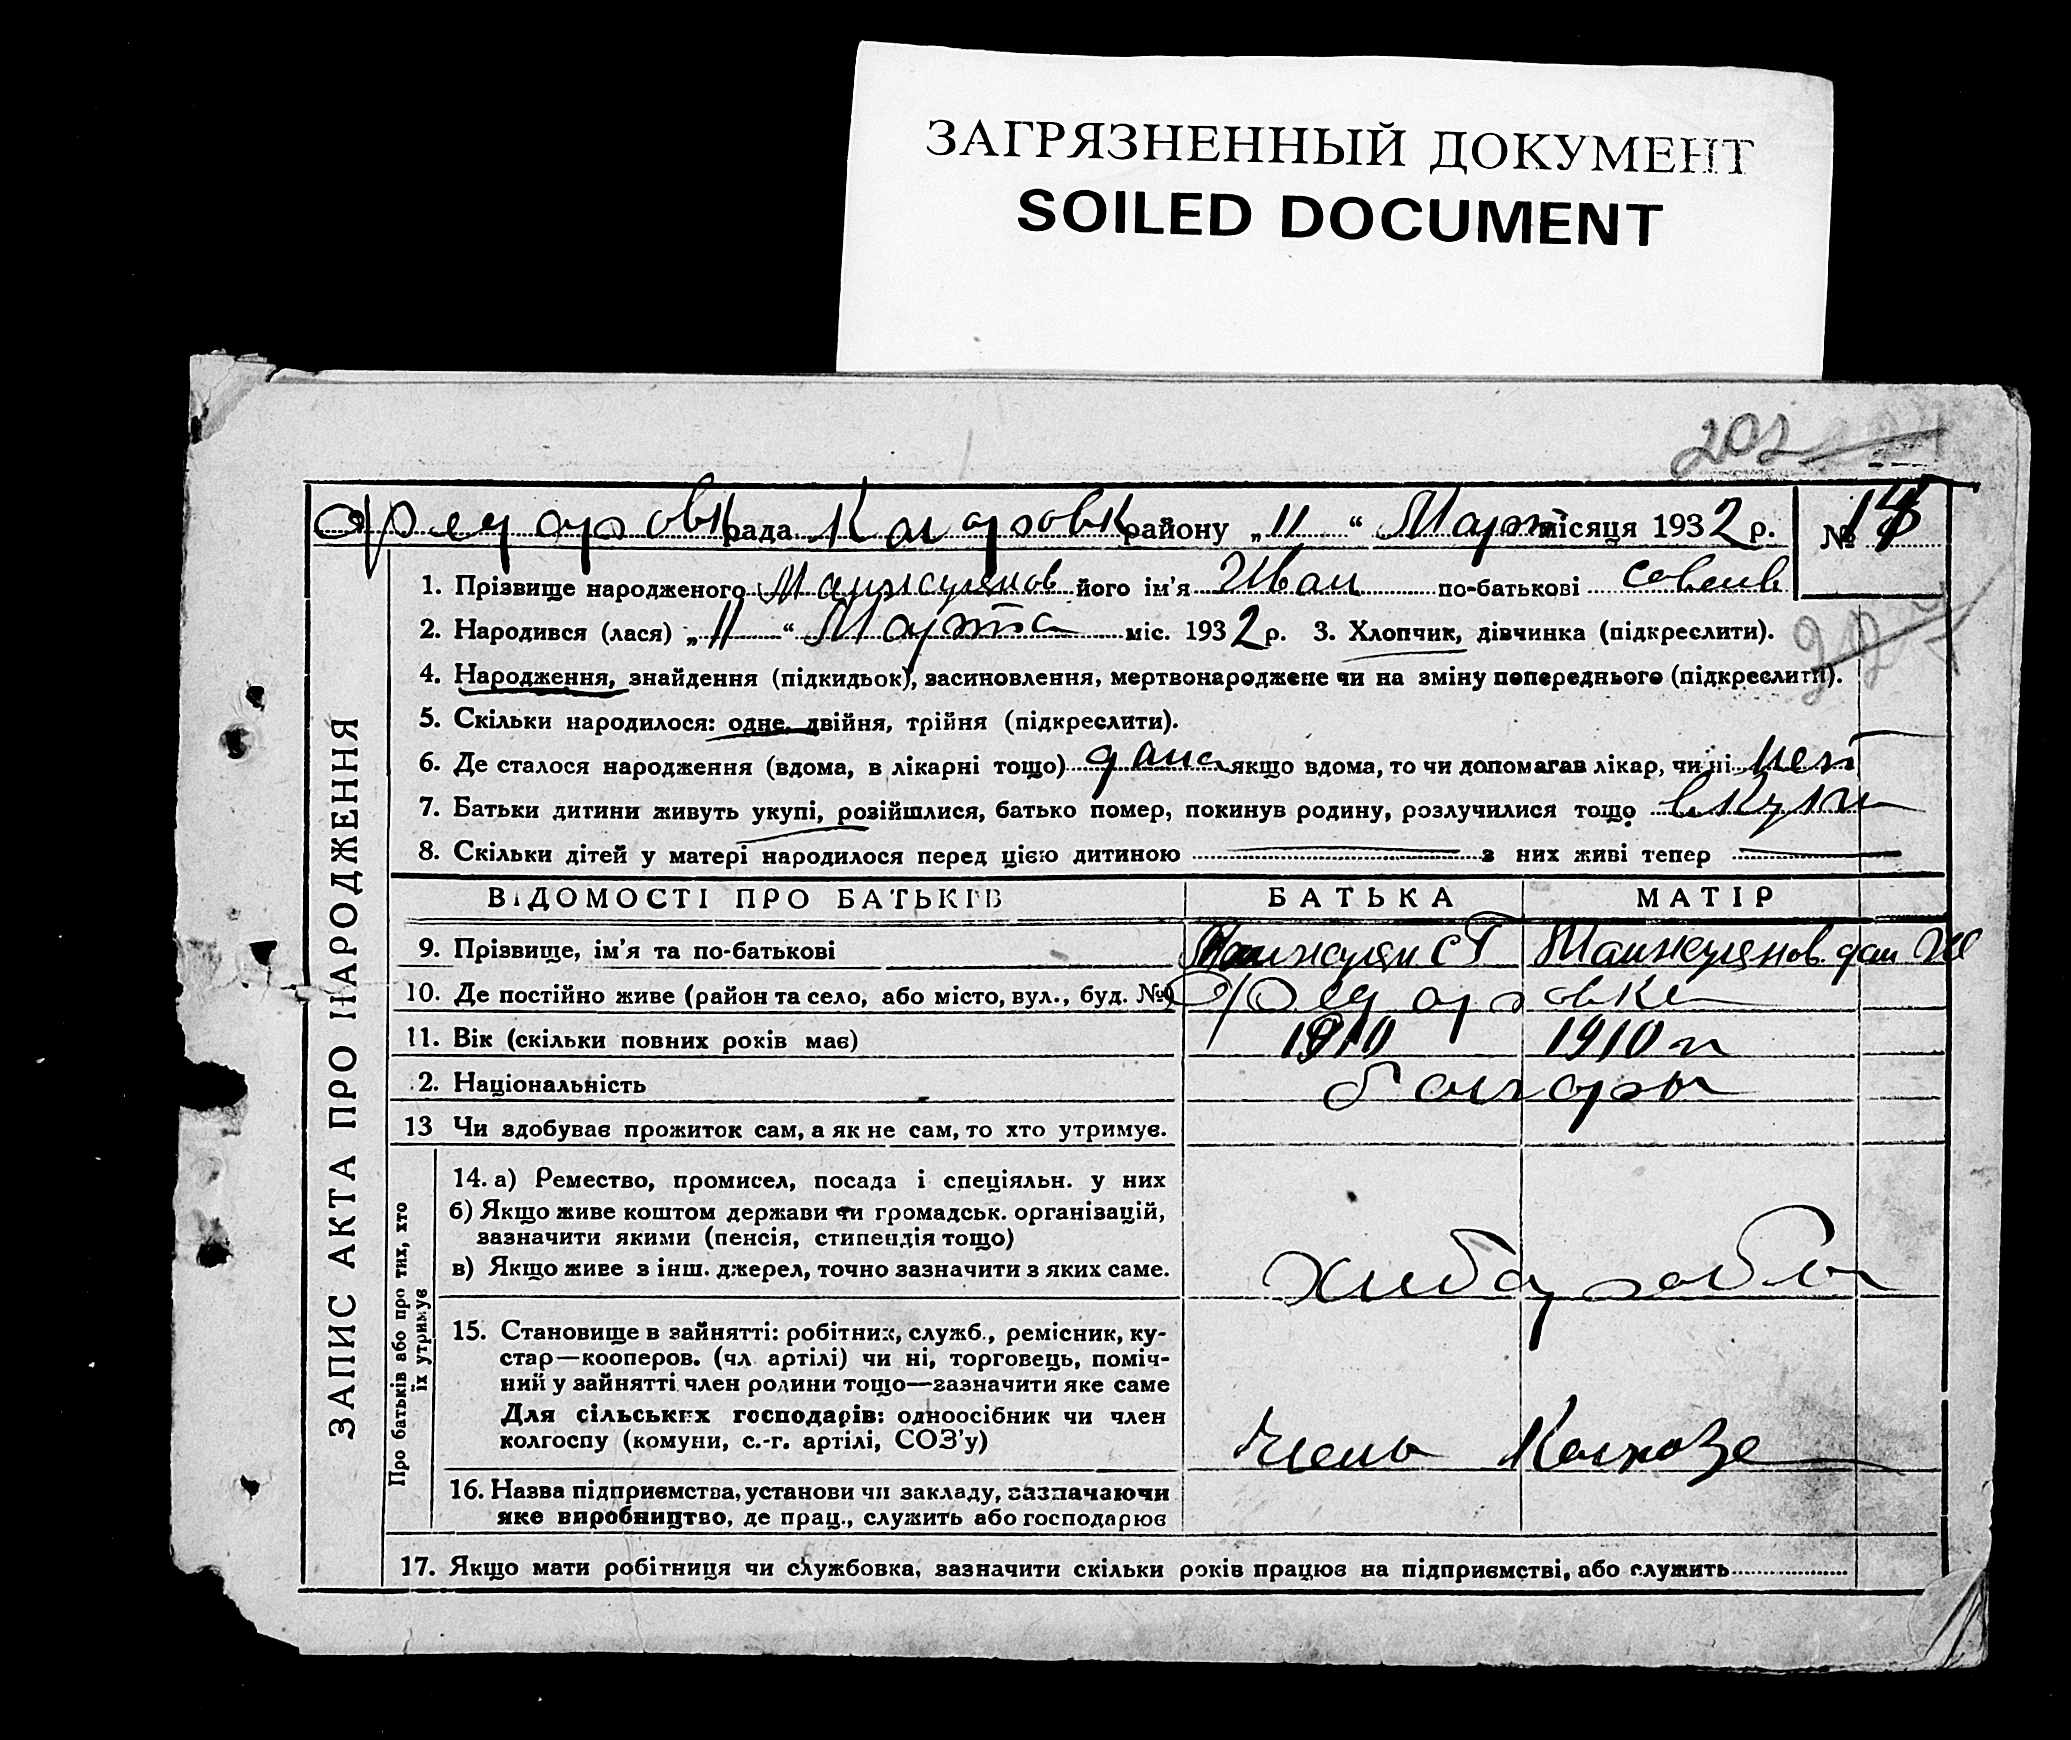 ЗАГРЯЗНЕННЫЙ ДОКУМЕНТ
SOILED DOCUMENT
202
рада района району „11“ Март місяця 1932 р. №
1. Прізвище народженого його ім'я Иван по-батькові
2. Народився (лася) „11“ Марта міс. 1932 р. 3. Хлопчик, дівчинка (підкреслити).
4. Народження, знайдення (підкидьок), засиновлення, мертвонароджене чи на зміну попереднього (підкреслити).
5. Скільки народилося: одне, двійня, трійня (підкреслити).
6. Де сталося народження (вдома, в лікарні тощо) дома якщо вдома, то чи допомагав лікар, чи ні нет
7. Батьки дитини живуть укупі, розійшлися, батько помер, покинув родину, розлучилися тощо вкупи
8. Скільки дітей у матері народилося перед цією дитиною з них живі тепер
ЗАПИС АКТА ПРО НАРОДЖЕННЯ
ВІДОМОСТІ ПРО БАТЬКІВ БАТЬКА МАТІР
9. Прізвище, ім'я та по-батькові
10. Де постійно живе (район та село, або місто, вул., буд. №)
11. Вік (скільки повних років має) 1910 1910
2. Національність болгары
13 Чи здобуває прожиток сам, а як не сам, то хто утримує.
Про батьків або про тих, хто
їх утримує
14. а) Ремество, промисел, посада і спеціяльн. у них
б) Якщо живе коштом держави чи громадськ. організацій,
зазначити якими (пенсія, стипендія тощо)
в) Якщо живе з інш. джерел, точно зазначити з яких саме.
хлибаробы
15. Становище в зайнятті: робітник, служб., ремісник, ку-
стар—кооперов. (чл. артілі) чи ні, торговець, поміч-
ний у зайнятті член родини тощо—зазначити яке саме
Для сільських господарів: одноосібник чи член
колгоспу (комуни, с.-г. артілі, СОЗ'у) Члены Колхоза
16. Назва підприємства, установи чи закладу, зазначаючи
яке виробництво, де прац., служить або господарює
17. Якщо мати робітниця чи службовка, зазначити скільки років працює на підприємстві, або служить